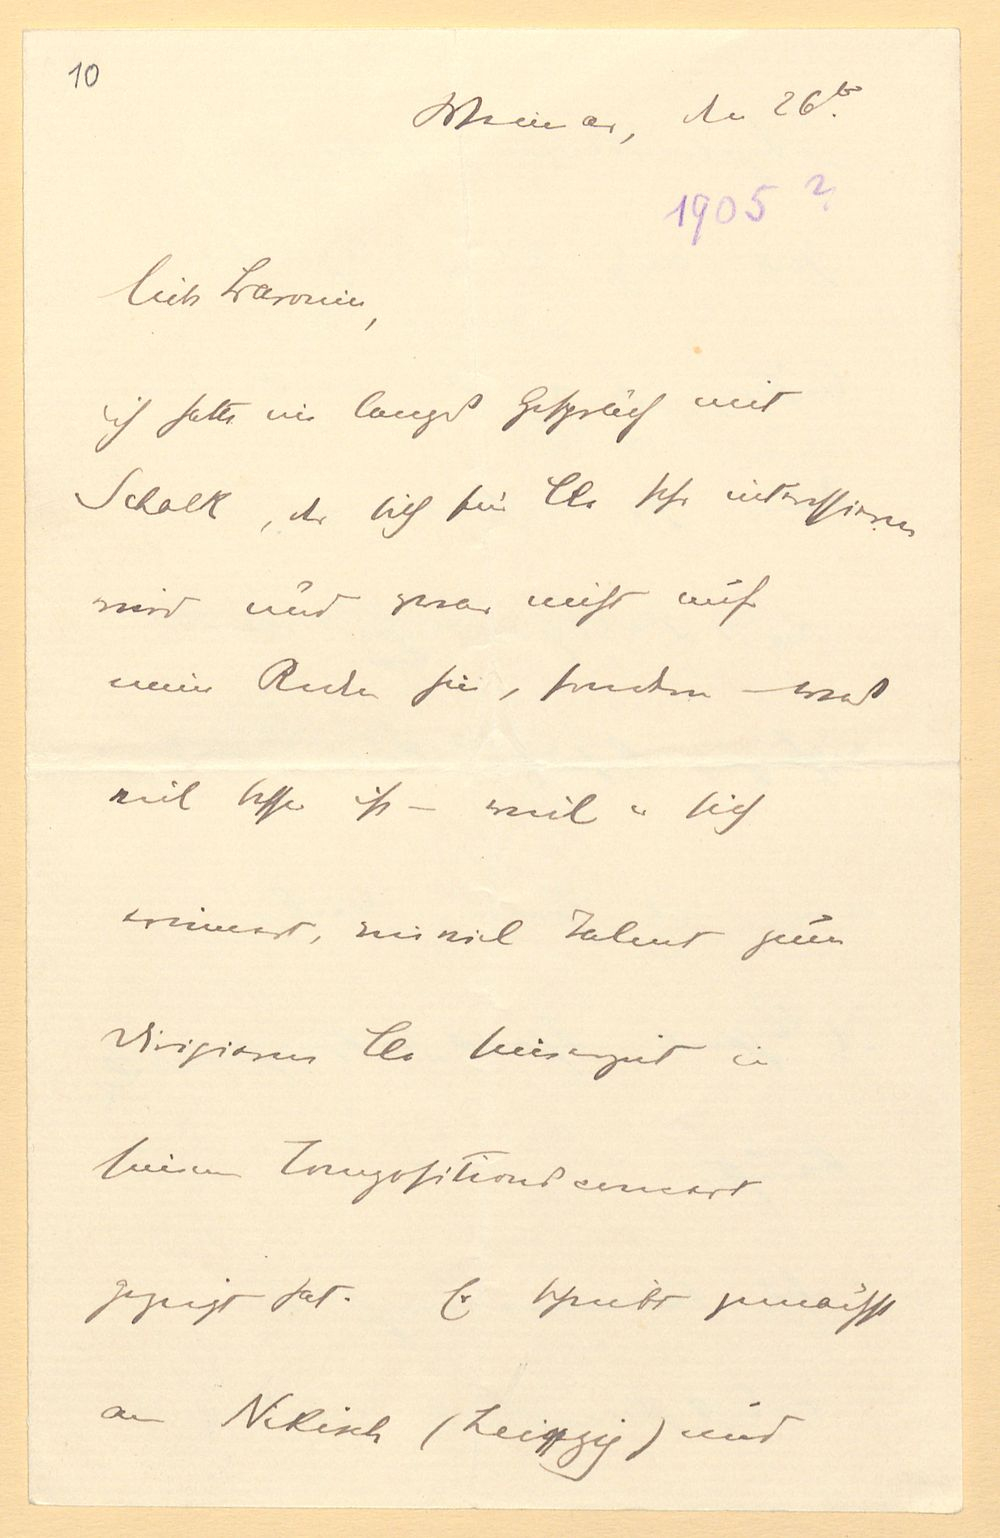 10
Weimar, den 26ten.
1905?
liebe Baronin,
ich hatte ein langes Gespräch mit
Schalk, der sich für Clo sehr interessieren
wird und zwar nicht auf
mein Reden hin, sondern – was
viel besser ist – weil er sich
erinnert, wie viel Talent zum
Dirigieren Clo seinerzeit in
seinem Compositionsconcert
gezeigt hat. Er schreibt zunächst
an Nikisch (Leipzig) und